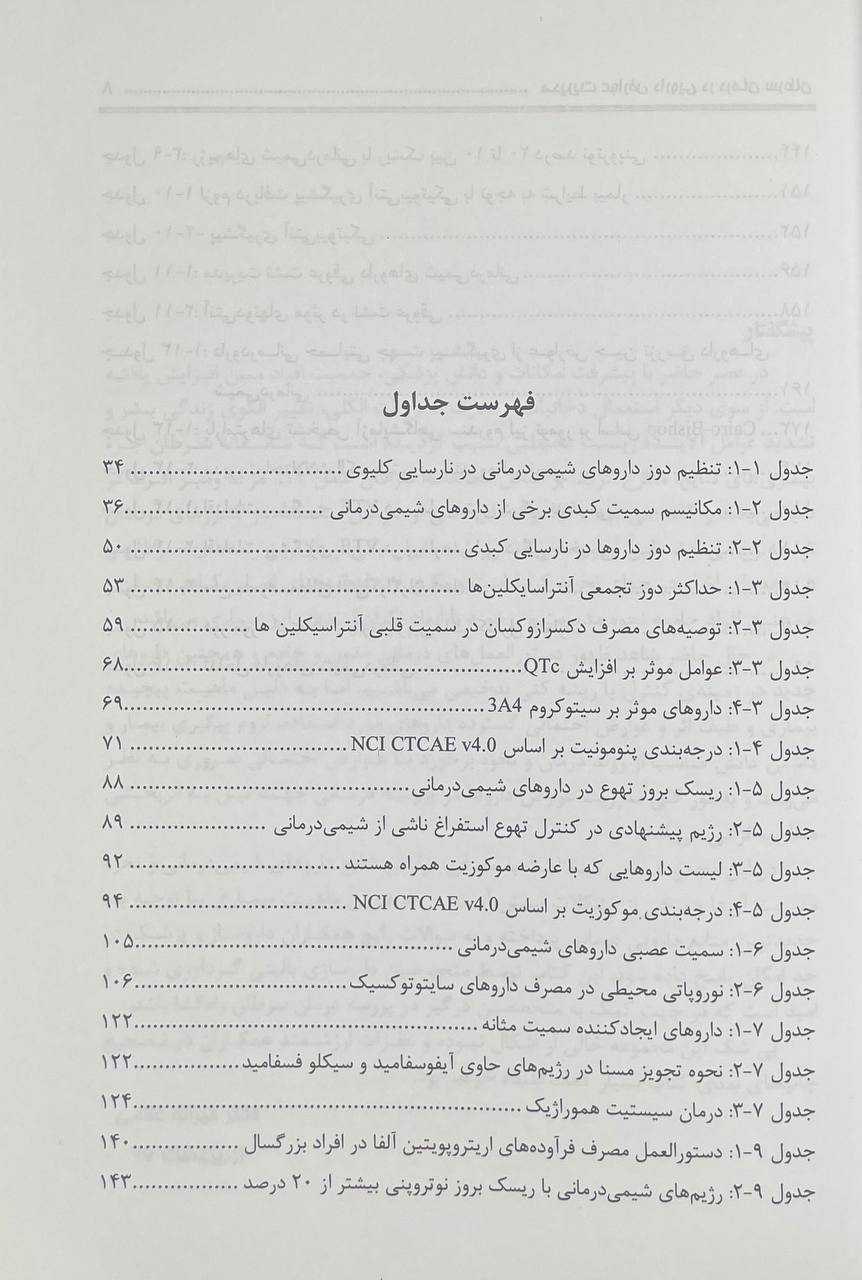 فهرست جداول
جدول ۱-۱: تنظیم دوز داروهای شیمی‌درمانی در نارسایی کلیوی ........ ۳۴
جدول ۲-۱: مکانیسم سمیت کبدی برخی از داروهای شیمی‌درمانی ........ ۳۶
جدول ۲-۲: تنظیم دوز داروها در نارسایی کبدی ........ ۵۰
جدول ۳-۱: حداکثر دوز تجمعی آنتراسایکلین‌ها ........ ۵۳
جدول ۳-۲: توصیه‌های مصرف دکسرازوکسان در سمیت قلبی آنتراسیکلین ها ........ ۵۹
جدول ۳-۳: عوامل موثر بر افزایش QTc ........ ۶۸
جدول ۳-۴: داروهای موثر بر سیتوکروم 3A4 ........ ۶۹
جدول ۴-۱: درجه‌بندی پنومونیت بر اساس NCI CTCAE v4.0 ........ ۷۱
جدول ۵-۱: ریسک بروز تهوع در داروهای شیمی‌درمانی ........ ۸۸
جدول ۵-۲: رژیم پیشنهادی در کنترل تهوع استفراغ ناشی از شیمی‌درمانی ........ ۸۹
جدول ۵-۳: لیست داروهایی که با عارضه موکوزیت همراه هستند ........ ۹۲
جدول ۵-۴: درجه‌بندی موکوزیت بر اساس NCI CTCAE v4.0 ........ ۹۴
جدول ۶-۱: سمیت عصبی داروهای شیمی‌درمانی ........ ۱۰۵
جدول ۶-۲: نوروپاتی محیطی در مصرف داروهای سایتوتوکسیک ........ ۱۰۶
جدول ۷-۱: داروهای ایجادکننده سمیت مثانه ........ ۱۲۲
جدول ۷-۲: نحوه تجویز مسنا در رژیم‌های حاوی آیفوسفامید و سیکلو فسفامید ........ ۱۲۲
جدول ۷-۳: درمان سیستیت هموراژیک ........ ۱۲۴
جدول ۹-۱: دستورالعمل مصرف فرآوده‌های اریتروپویتین آلفا در افراد بزرگسال ........ ۱۴۰
جدول ۹-۲: رژیم‌های شیمی‌درمانی با ریسک بروز نوتروپنی بیشتر از ۲۰ درصد ........ ۱۴۳